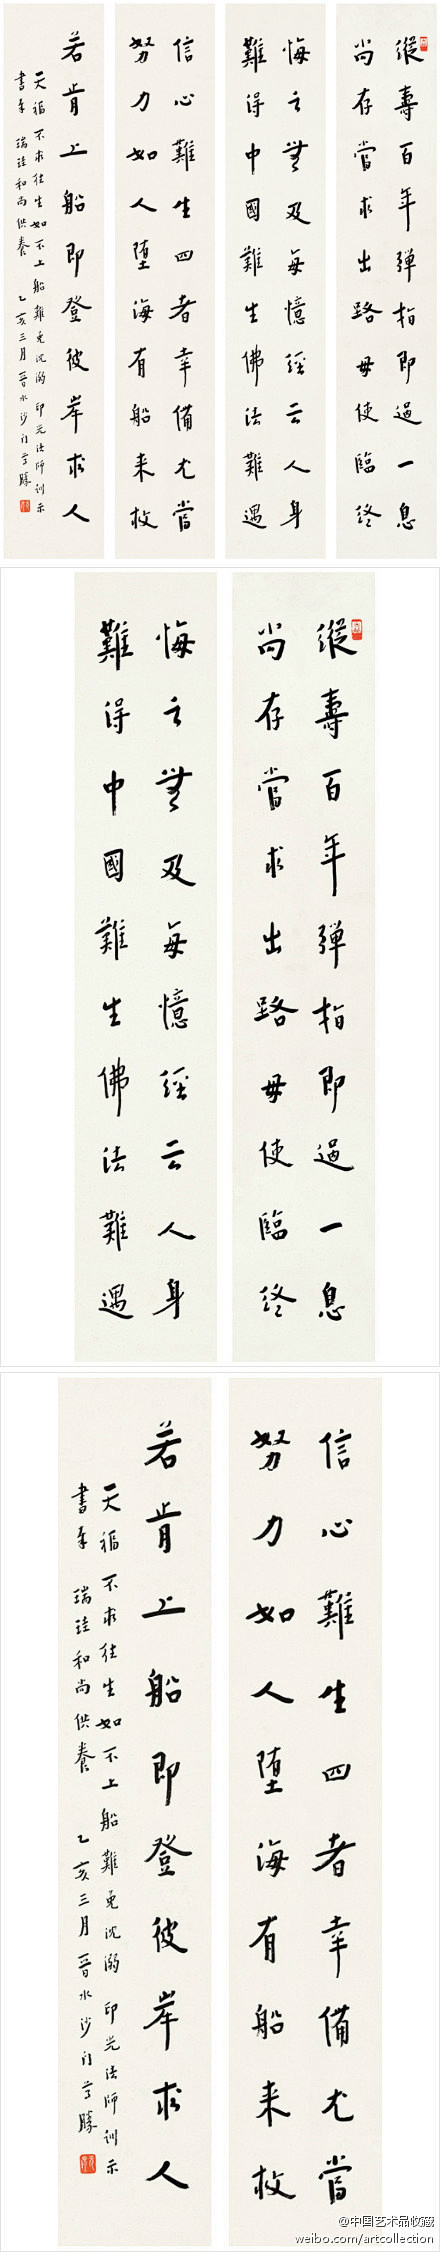 縱壽百年彈指即過一息
尚存當求出路毋使臨終
悔之無及每憶經云人身
難得中國難生佛法難遇
信心難生四者幸備尤當
努力如人墮海有船來救
若肯上船即登彼岸求人
天福不求往生如不上船難免沈溺 印光法師訓示
書奉 瑞珪和尚供養 乙亥三月晉水沙門尊勝
縱壽百年彈指即過一息
尚存當求出路毋使臨終
悔之無及每憶經云人身
難得中國難生佛法難遇
信心難生四者幸備尤當
努力如人墮海有船來救
若肯上船即登彼岸求人
天福不求往生如不上船難免沈溺 印光法師訓示
書奉 瑞珪和尚供養 乙亥三月晉水沙門尊勝
@中国艺术品收藏
weibo.com/artcollection